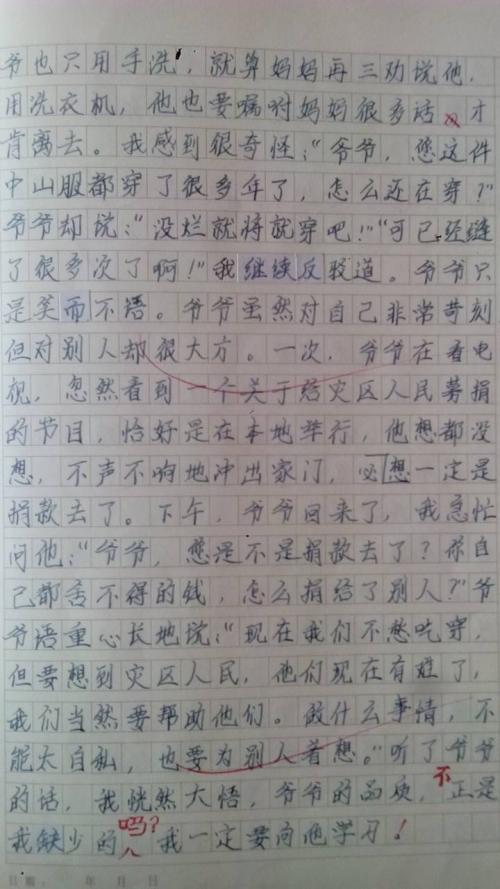 爷也只用手洗，就算妈妈再三劝说他，
用洗衣机，他也要嘱咐妈妈很多话，才
肯离去。我感到很奇怪：“爷爷，您这件
中山服都穿了很多年了，怎么还在穿？”
爷爷却说：“没烂就将就穿吧！”“可已经缝
了很多次了啊！”我继续反驳道。爷爷只
是笑而不语。爷爷虽然对自己非常苛刻
但对别人却很大方。一次，爷爷在看电
视，忽然看到一个关于给灾区人民募捐
的节目，恰好是在本地举行，他想都没
想，不声不响地冲出家门，想一定是
捐款去了。下午，爷爷回来了，我急忙
问他：“爷爷，您是不是捐款去了？你自
己都舍不得的钱，怎么捐给了别人？”爷
爷语重心长地说：“现在我们不愁吃穿，
但要想到灾区人民，他们现在有难了，
我们当然要帮助他们。做什么事情，不
能太自私，也要为别人着想。”听了爷爷
的话，我恍然大悟，爷爷的品质，不正是
我缺少的吗？我一定要向他学习！
日期： 年 月 日